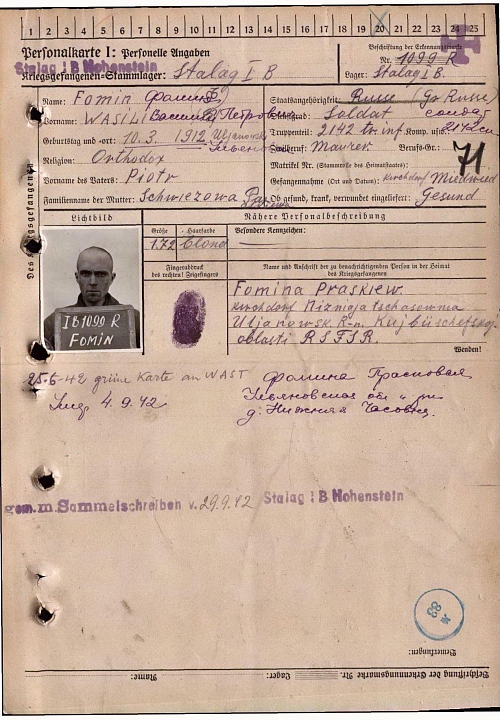 1 2 3 4 5 6 7 8 9 10 11 12 13 14 15 16 17 18 19 20 21 22 23 24 25
Personalkarte I: Personelle Angaben
Stalag I B Hohenstein
Kriegsgefangenen-Stammlager: Stalag I B
Beschriftung der Erkennungsmarke
Nr. 1099 R
Lager: Stalag I B.
Des Kriegsgefangenen
Name: Fomin Фомин
Vorname: WASILI Василий Петрович
Geburtstag und -ort: 10.3.1912 Uljanowsk
Religion: Orthodox
Vorname des Vaters: Piotr
Familienname der Mutter: Schwiezowa
Staatsangehörigkeit: Russe (Gr. Russe)
Dienstgrad: Soldat солдат
Truppenteil: 2142 tr. inf. Komp. usw.:
Zivilberuf: Maurer Berufs-Gr.:
71
Matrikel Nr. (Stammrolle des Heimatstaates):
Gefangennahme (Ort und Datum): Kirchdorf Miedwied
Ob gesund, krank, verwundet eingeliefert: Gesund
Lichtbild
IB1090 R
FOMIN
Nähere Personalbeschreibung
Größe Haarfarbe
1.72 blond
Besondere Kennzeichen:
Fingerabdruck
des rechten! Zeigefingers
Name und Anschrift der zu benachrichtigenden Person in der Heimat
des Kriegsgefangenen
Fomina Praskiew.
Kirchdorf Niznaja tschasownia
Uljanowsk. R-n. Kujbüschefskaj
oblasti RSFSR.
Wenden!
25-6-42 grüne Karte an WAST
4.9.42
Фомина Прасковая
Ульяновская
д. Нижняя Часовня
gem. m. Sammelschreiben v. 29.9.42 Stalag I B Hohenstein
83
Bemerkungen:
Beschriftung der Erkennungsmarke Nr. Lager: Name: